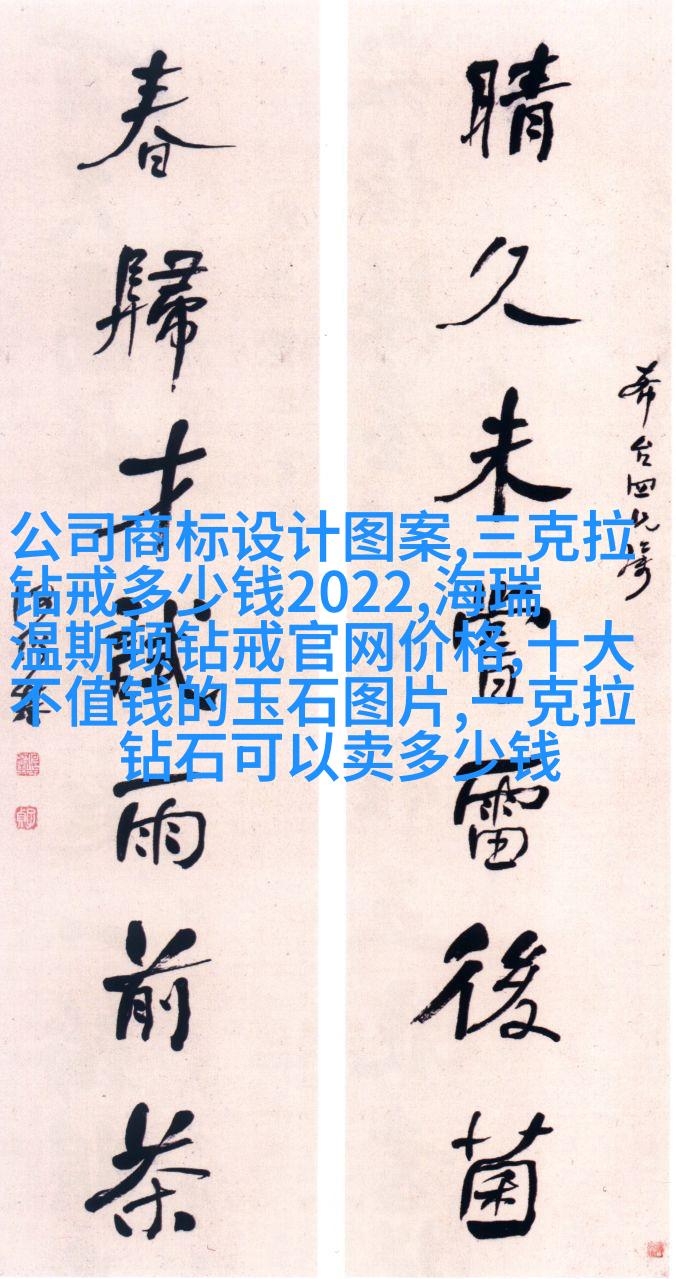 晴久未嘗雷後菌
春歸才試雨前茶
公司商标设计图案,三克拉
钻戒多少钱2022,海瑞
温斯顿钻戒官网价格,十大
不值钱的玉石图片,一克拉
钻石可以卖多少钱